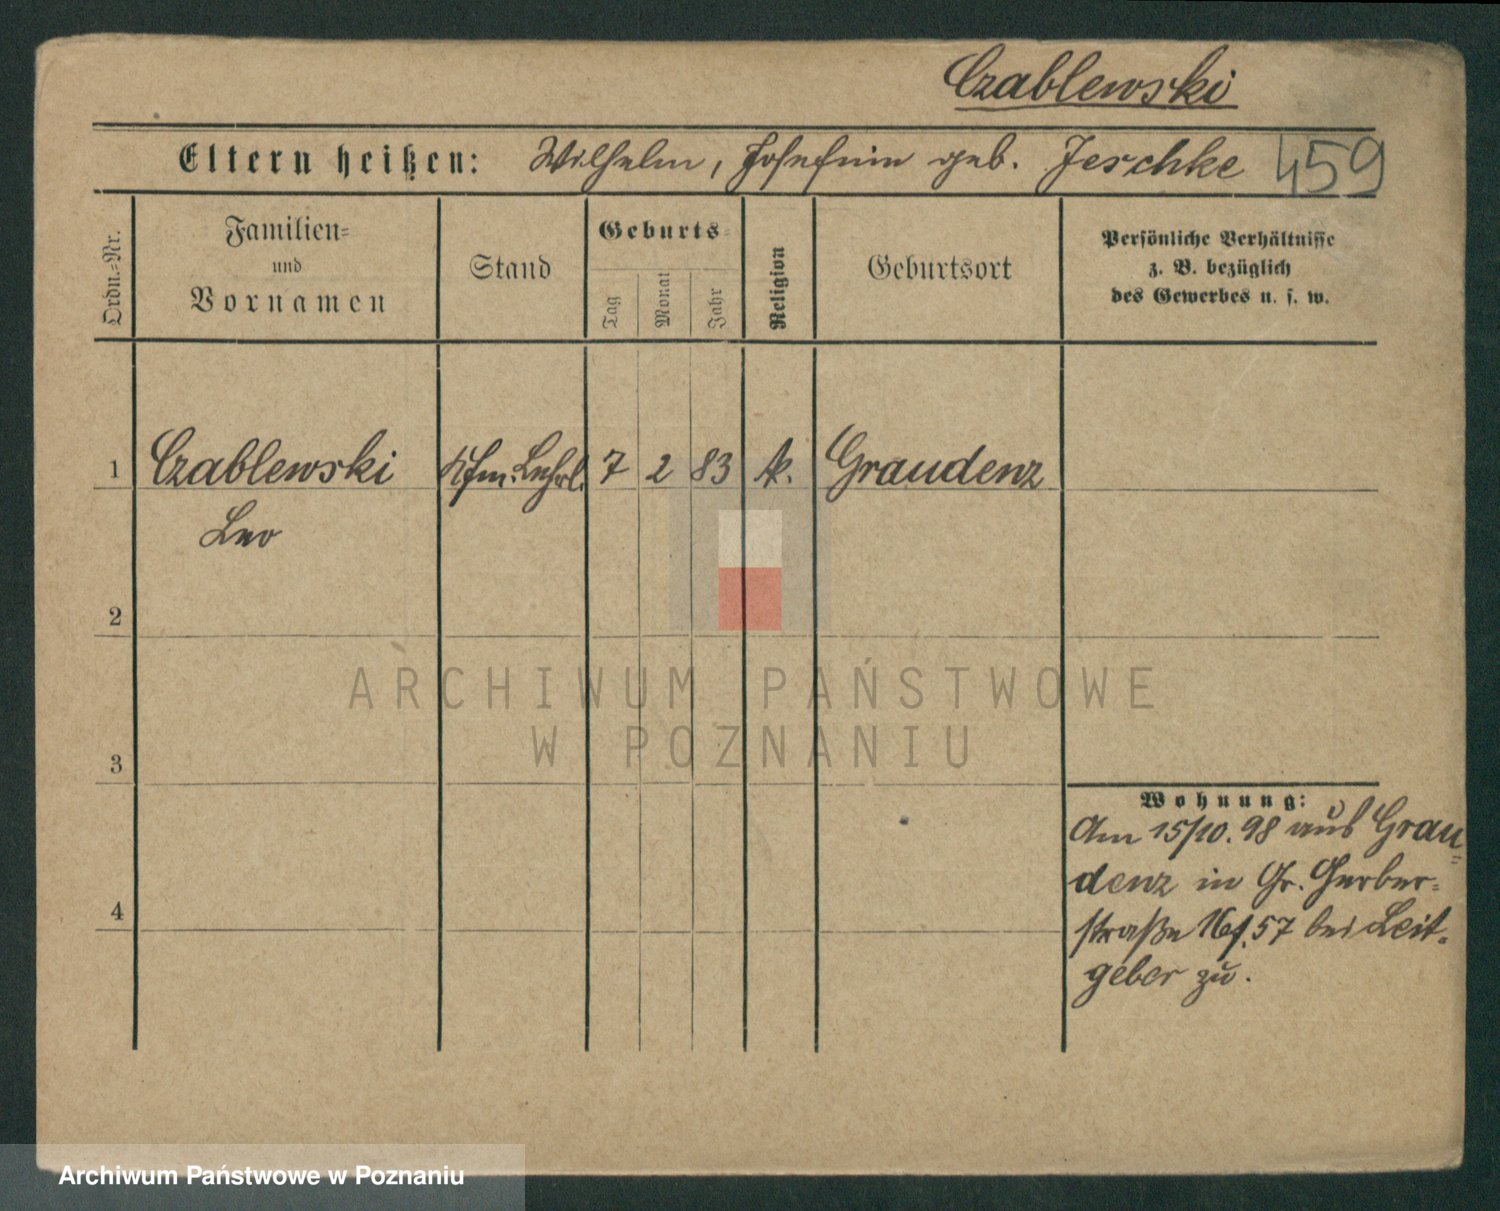 Czablewski
Eltern heißen: Wilhelm, Josefine geb. Jeschke 459
Ordn.=Nr.
Familien=
und
Vornamen
Stand
Geburts=
Tag
Monat
Jahr
Religion
Geburtsort
Persönliche Verhältnisse
z. B. bezüglich
des Gewerbes u. s. w.
1 Czablewski Kfm. Lehrl. 7 2 83 k. Graudenz
Leo
2
3
4
Wohnung:
Am 15/10. 98 aus Grau=
denz in Gr. Gerber=
straße 57 bei Leit=
geber zu.
ARCHIWUM PAŃSTWOWE
W POZNANIU
Archiwum Państwowe w Poznaniu